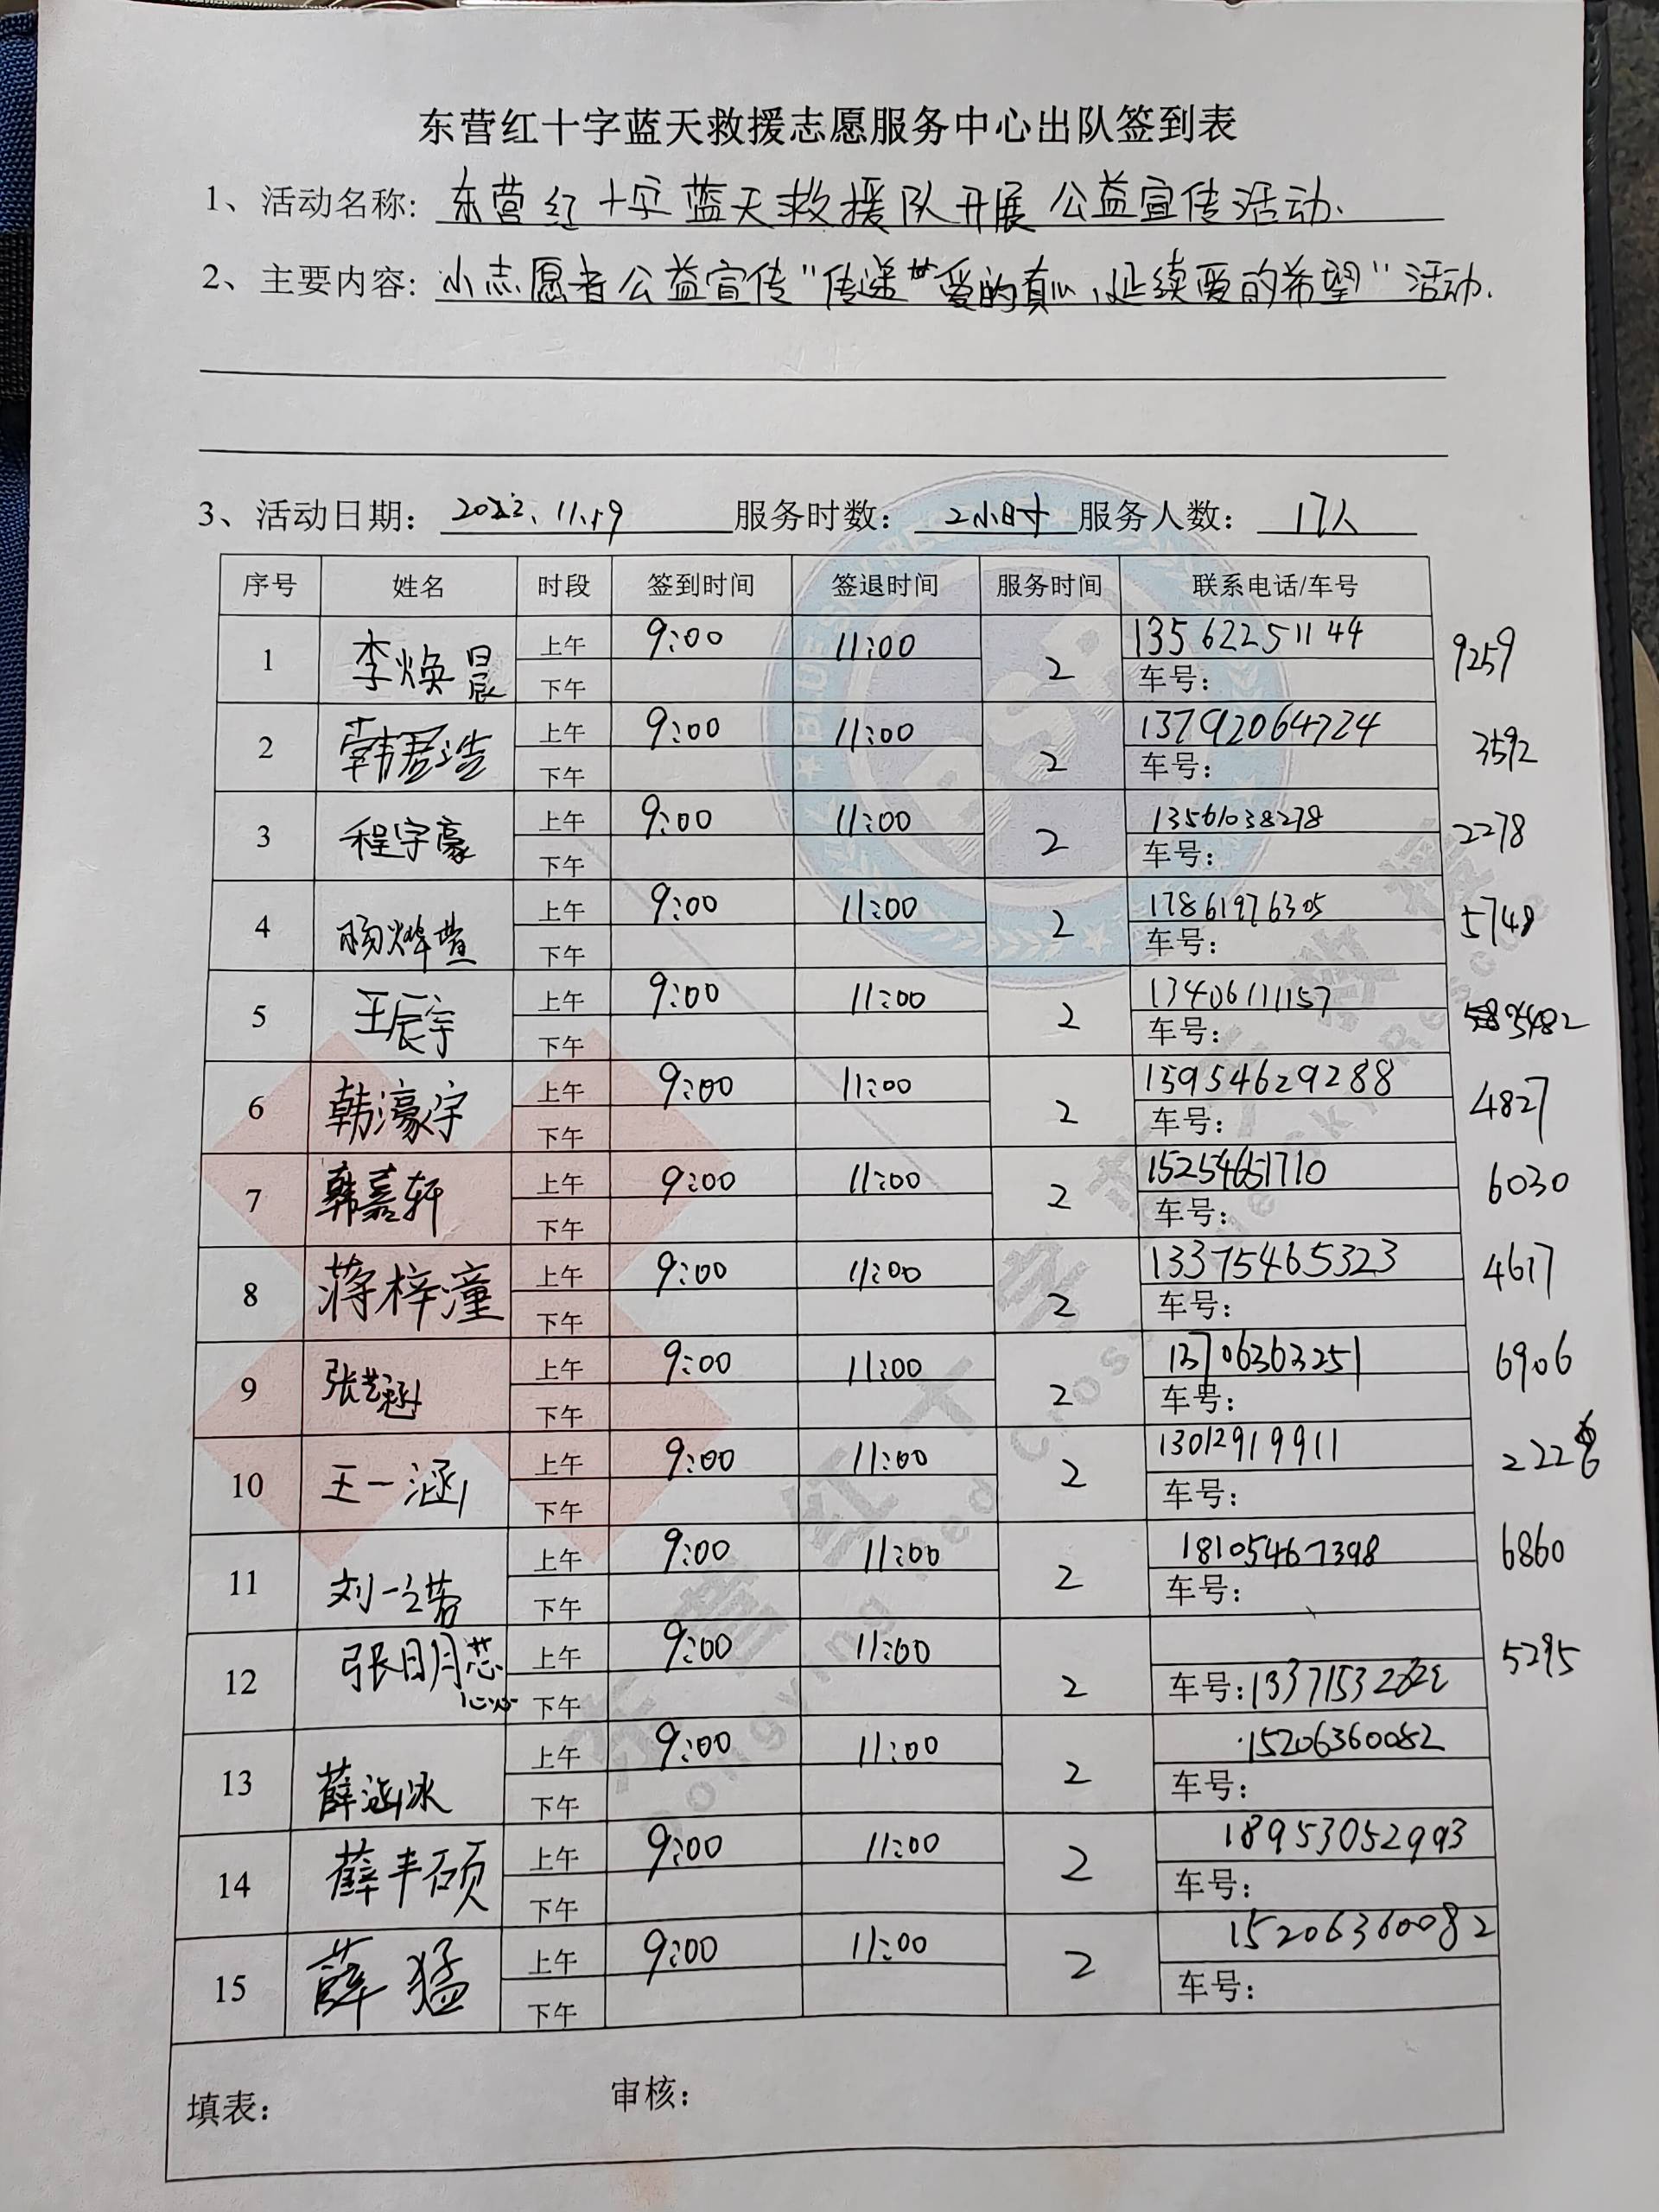 东营红十字蓝天救援志愿服务中心出队签到表
1、活动名称: 东营红十字蓝天救援队开展公益宣传活动.
2、主要内容: 小志愿者公益宣传"传递 爱的真心,延续爱的希望"活动.
3、活动日期: 2023.11.19 服务时数: 2小时 服务人数: 17人
序号 姓名 时段 签到时间 签退时间 服务时间 联系电话/车号
1 李焕晨 上午 9:00 11:00 2 13562251144 9259
下午 车号:
2 韩君浩 上午 9:00 11:00 2 13792064724 3592
下午 车号:
3 程宇豪 上午 9:00 11:00 2 13561038278 2278
下午 车号:
4 杨烨萱 上午 9:00 11:00 2 17861976305 5748
下午 车号:
5 王辰宇 上午 9:00 11:00 2 13406111157
下午 车号:
6 韩濠宇 上午 9:00 11:00 2 13954629288 4827
下午 车号:
7 韩嘉轩 上午 9:00 11:00 2 15254651710 6030
下午 车号:
8 蒋梓潼 上午 9:00 11:00 2 13375465323 4617
下午 车号:
9 张艺涵 上午 9:00 11:00 2 13706363251 6906
下午 车号:
10 王一涵 上午 9:00 11:00 2 13012919911 2226
下午 车号:
11 刘一 上午 9:00 11:00 2 18105467398 6860
下午 车号:
12 张明芯 上午 9:00 11:00 2 5295
下午 车号:
13 薛涵冰 上午 9:00 11:00 2 15206360082
下午 车号:
14 薛丰硕 上午 9:00 11:00 2 18953052993
下午 车号:
15 薛猛 上午 9:00 11:00 2 15206360082
下午 车号:
填表: 审核:
东营红十字蓝天救援
Dongying Red Cross Blue Sky Rescue